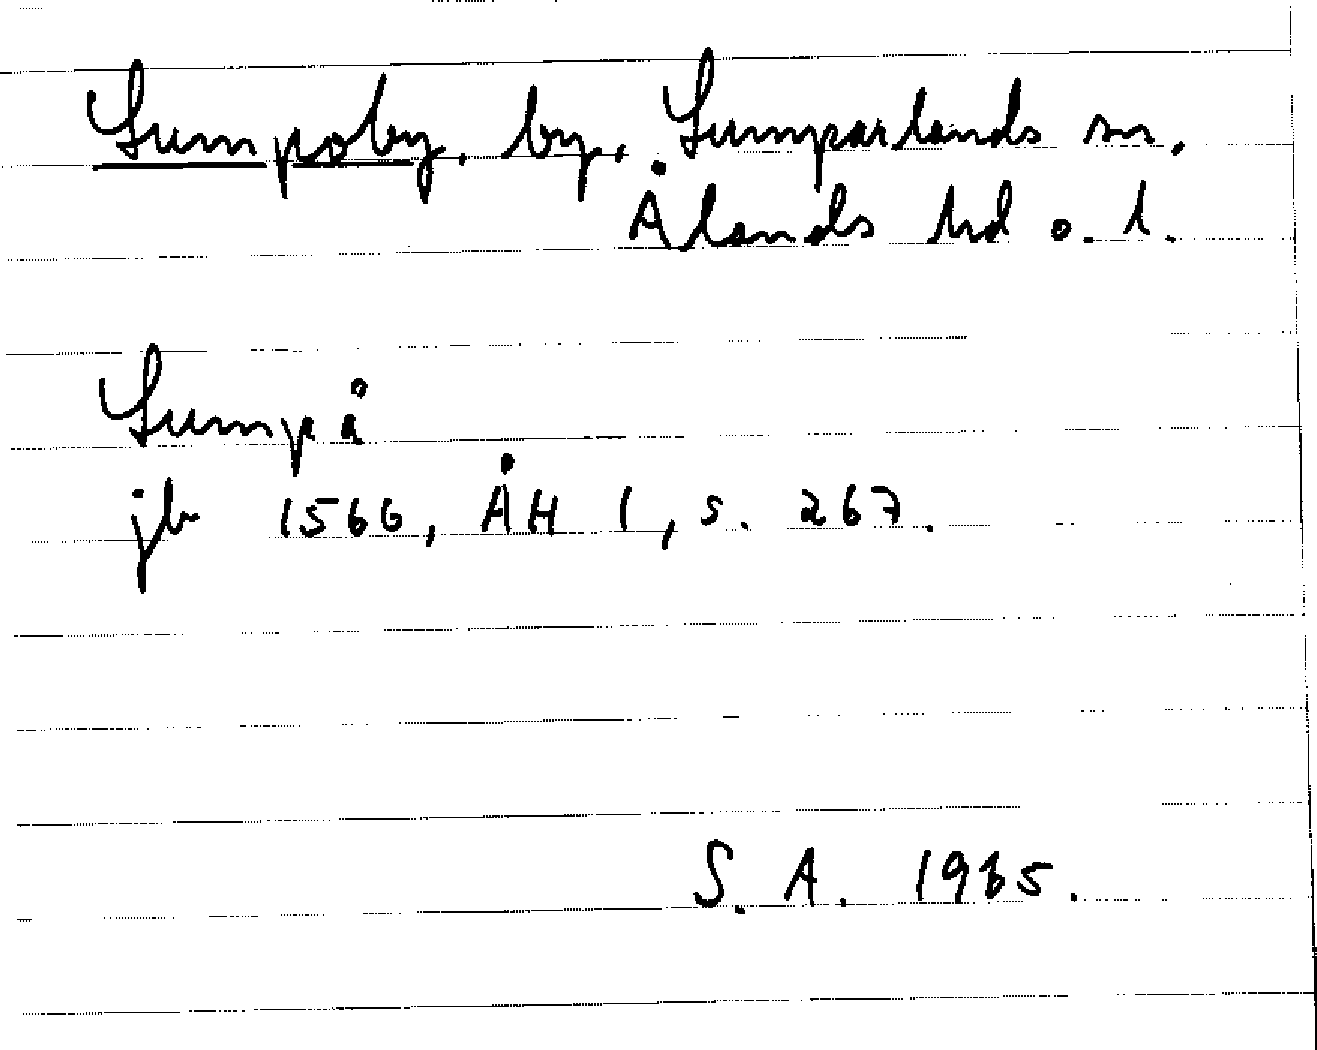 Lumpoby, by, Lumparlands sn,
Ålands hd o. l.
Lumpå
jb 1566, ÅH 1, s. 267.
S. A. 1985.